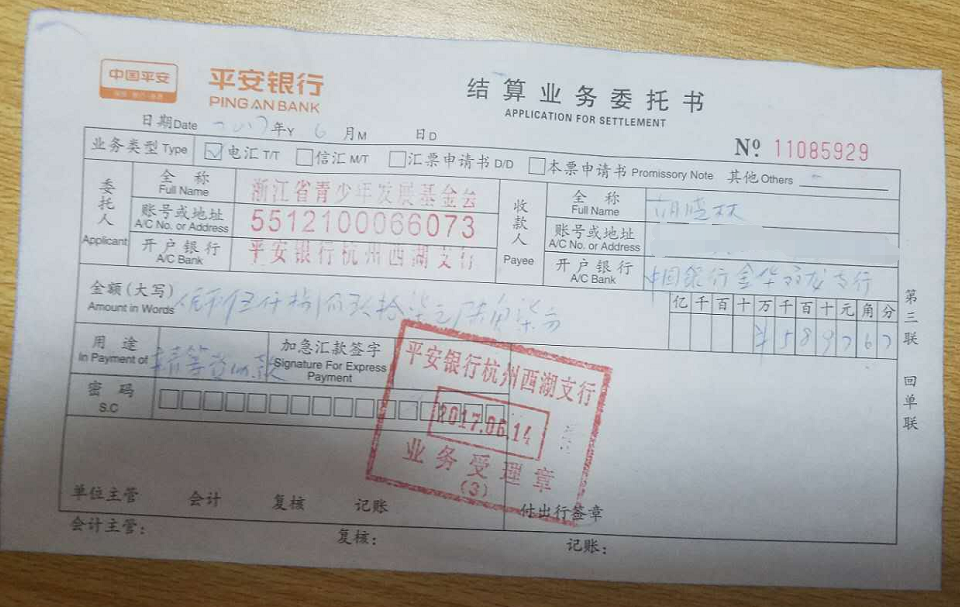 中国平安
平安银行
PING AN BANK
结算业务委托书
APPLICATION FOR SETTLEMENT
日期Date 2017年Y 6月M 日D
№ 11085929
业务类型 Type 电汇 T/T 信汇 M/T 汇票申请书 D/D 本票申请书 Promissory Note 其他 Others
委托人 Applicant
全称 Full Name 浙江省青少年发展基金会
账号或地址 A/C No. or Address 5512100066073
开户银行 A/C Bank 平安银行杭州西湖支行
收款人 Payee
全称 Full Name 胡晓林
账号或地址 A/C No. or Address
开户银行 A/C Bank 中国银行金华双龙支行
金额(大写) Amount in Words 伍仟捌佰玖拾柒元陆角柒分
亿千百十万千百十元角分
¥589767
用途 In Payment of
加急汇款签字 Signature For Express Payment
密码 S.C
平安银行杭州西湖支行
2017.06.14
业务受理章
(3)
单位主管 会计 复核 记账 付出行签章
会计主管: 复核: 记账:
第三联 回单联